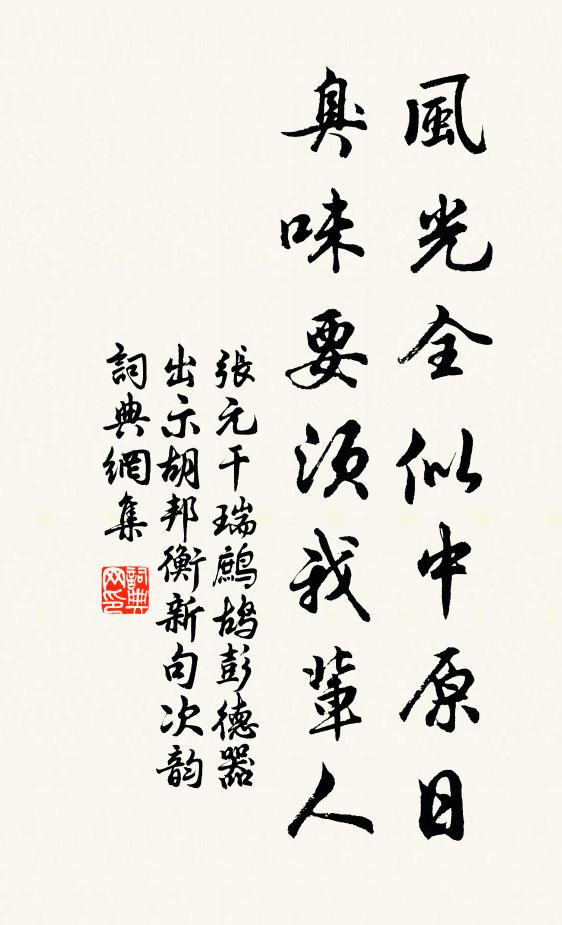 風光全似中原日
臭味要須我輩人
張元干瑞鷓鴣彭德器
出示胡邦衡新句次韵
詞典網集
詞典
网印